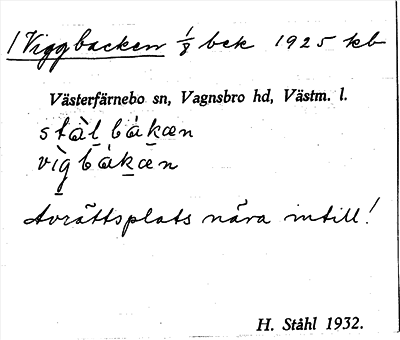 1 Viggbacken 1/8 bek 1925 kb
Västerfärnebo sn, Vagnsbro hd, Västm. l.
stὰl̲ bάk̲æn
vìg̲ bάk̲æn
Avrättsplats nära intill!
H. Ståhl 1932.